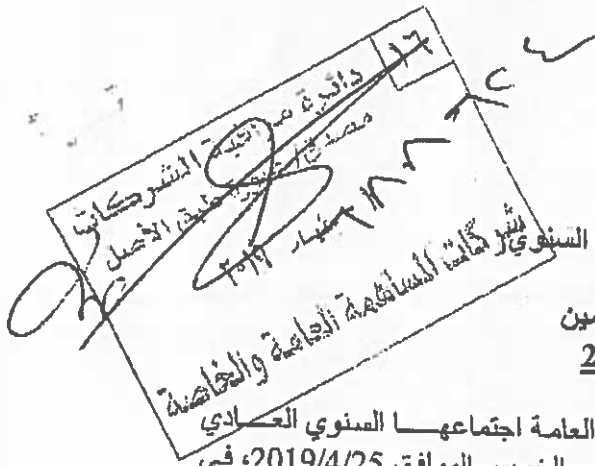 ١٦
دائرة مراقبة الشركات
مصدق / صورة طبق الأصل
٢٠١٩
شركات المساهمة العامة والخاصة
السنوي
ين
2
العامة اجتماعهـــا السنوي العـــادي
الموافق 2019/4/25، في